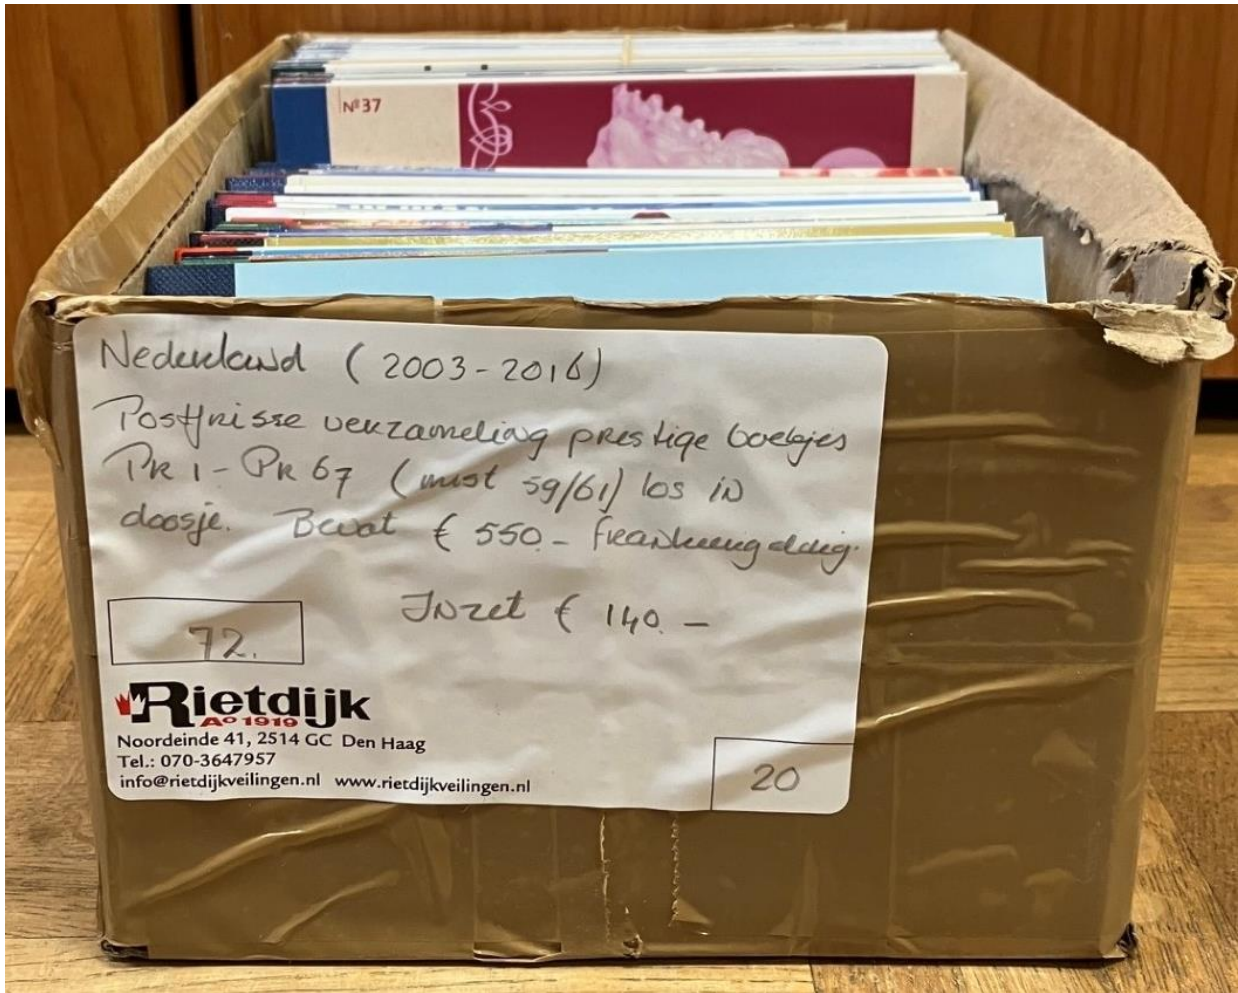 Nº 37
Nederland (2003-2016)
Postfrisse verzameling prestige boekjes
PR 1 - PR 67 (mist 59/61) los in
doosje. Bevat € 550.- frankeergeldig.
Inzet € 140.-
72.
Rietdijk
Aº 1919
Noordeinde 41, 2514 GC Den Haag
Tel.: 070-3647957
info@rietdijkveilingen.nl www.rietdijkveilingen.nl
20